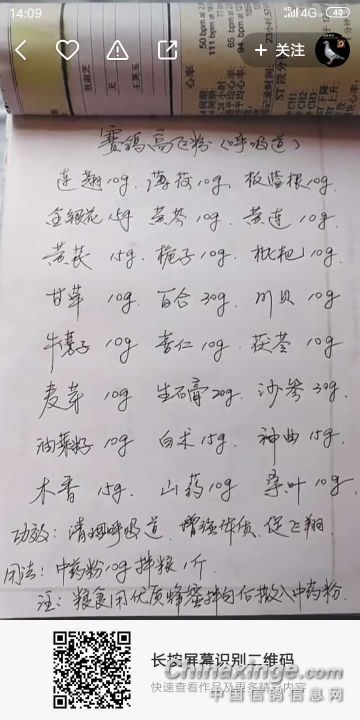 14:09
4G
40
+ 关注
心率
50 bpm at
111 bpm at
65 bpm
94 bpm
ST 段分
CH1
CH2
CH3
赛鸽高飞粉（呼吸道）
连翘10g 薄荷10g 板蓝根10g
金银花15g 黄芩10g 黄连10g
黄芪15g 栀子10g 枇杷10g
甘草10g 百合30g 川贝10g
牛蒡子10g 杏仁10g 茯苓10g
麦芽10g 生石膏20g 沙参30g
油菜籽10g 白术15g 神曲15g
木香15g 山药10g 桑叶10g
功效：清理呼吸道 增强体质 促飞翔
用法：中药粉10g拌粮1斤
注：粮食用优质蜂蜜拌匀后撒入中药粉
长按屏幕识别二维码
快速查看作品及更多精彩内容
Chinaxinge.com
中国信鸽信息网